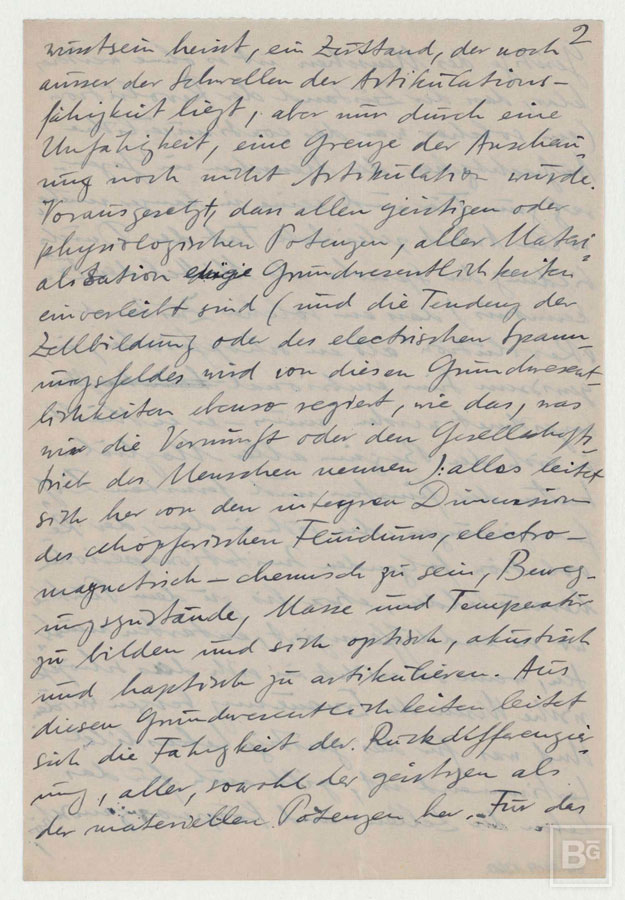 2
wusstsein heisst, ein Zustand, der noch
ausser der Schwellen der Artikulations-
fähigkeit liegt, aber nur durch eine
Unfähigkeit, eine Grenze der Anschau-
ung noch nicht Artikulation wurde.
Vorausgesetzt, dass allen geistigen oder
physiologischen Potenzen, aller Materi-
alisation Grundwesentlichkeiten
einverleibt sind (und die Tendenz der
Zellbildung oder des electrischen Spann-
ungsfeldes wird von diesen Grundwesent-
lichkeiten ebenso regiert, wie das, was
wir die Vernunft oder den Gesellschafts
trieb des Menschen nennen): alles leitet
sich her von den integren Dimension
des schöpferischen Fluidums, electro-
magnetisch-chemisch zu sein, Beweg-
ungszustände, Masse und Temperatur
zu bilden und sich optisch, akustisch
und haptisch zu artikulieren. Aus
diesen Grundwesentlichkeiten leitet
sich die Fähigkeit der Rückdifferenzier-
ung, aller, sowohl der geistigen als
der materiellen Potenzen her. Für das
BG